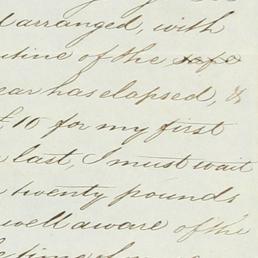 arranged, with
utine of the safe
ear has elapsed, &
£10 for my first
last, I must wait
twenty pounds
well aware of the